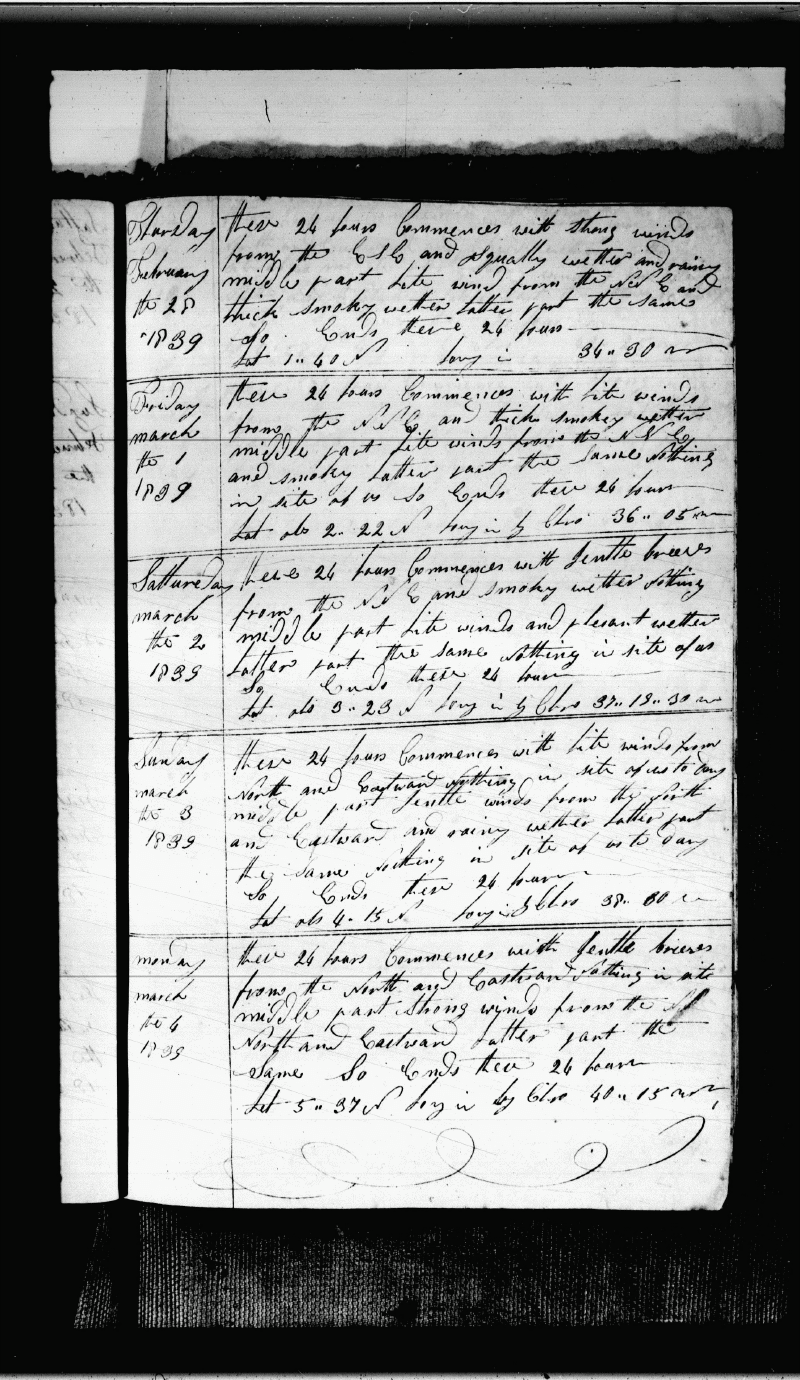 Thursday these 24 hours Commences with strong winds
from the ESE and Squally wether and rainy
February middle part Lite wind from the NNE and
the 28 thick smokey wether latter part the same
1839 So Ends these 24 hours
Lat 1..40 N Long in 34..30 w
Friday these 24 hours Commences with Lite winds
march from the NNE and thick smokey wether
the 1 middle part Lite winds from the NNE
and smokey latter part the Same Nothing
1839 in site of us So Ends these 24 hours
Lat obs 2..22 N Long in by Chro 36..05 w
Sattureday these 24 hours Commences with Jentle breeses
march from the NNE and smokey wether Nothing
the 2 middle part Lite winds and plesant wether
1839 latter part the same Nothing in site of us
So Ends these 24 hours
Lat obs 3..23 N Long in by Chro 37..18..30 w
Sunday these 24 hours Commences with Lite winds from
march North and Eastward Nothing in site of us to day
the 3 middle part Jentle winds from the North
1839 and Eastward and rainy wether latter part
the same Nothing in site of us to day
So Ends these 24 hours
Lat obs 4..15 N Long in by Chro 38..30 w
monday these 24 hours Commences with Jentle breeses
march from the North and Eastward Nothing in site
the 4 middle part Strong winds from the
1839 North and Eastward latter part the
Same So Ends these 24 hours
Lat 5..37 N Long in by Chro 40..05 w